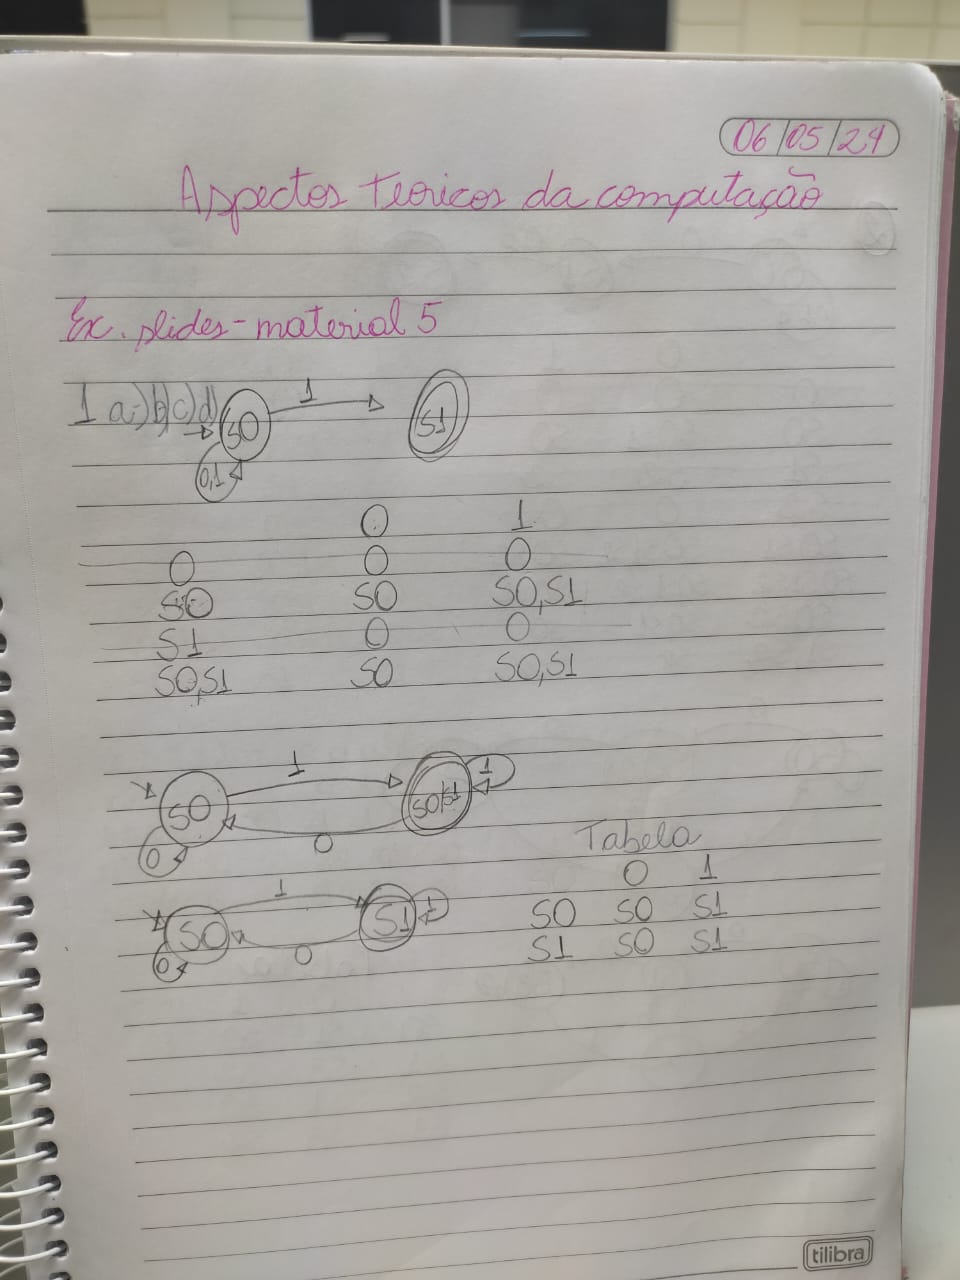 06/05/24
Aspectos Teoricos da computação
Ex. slides - material 5
1 a)b)c)d)
S0 1 S1
0,1
0 1
0 0 0
S0 S0 S0,S1
S1 0 0
S0,S1 S0 S0,S1
1
S0 S0,S1 1
0 0
Tabela
0 1
1
S0 S1 1
S0 S0 S1
0 0
S1 S0 S1
tilibra